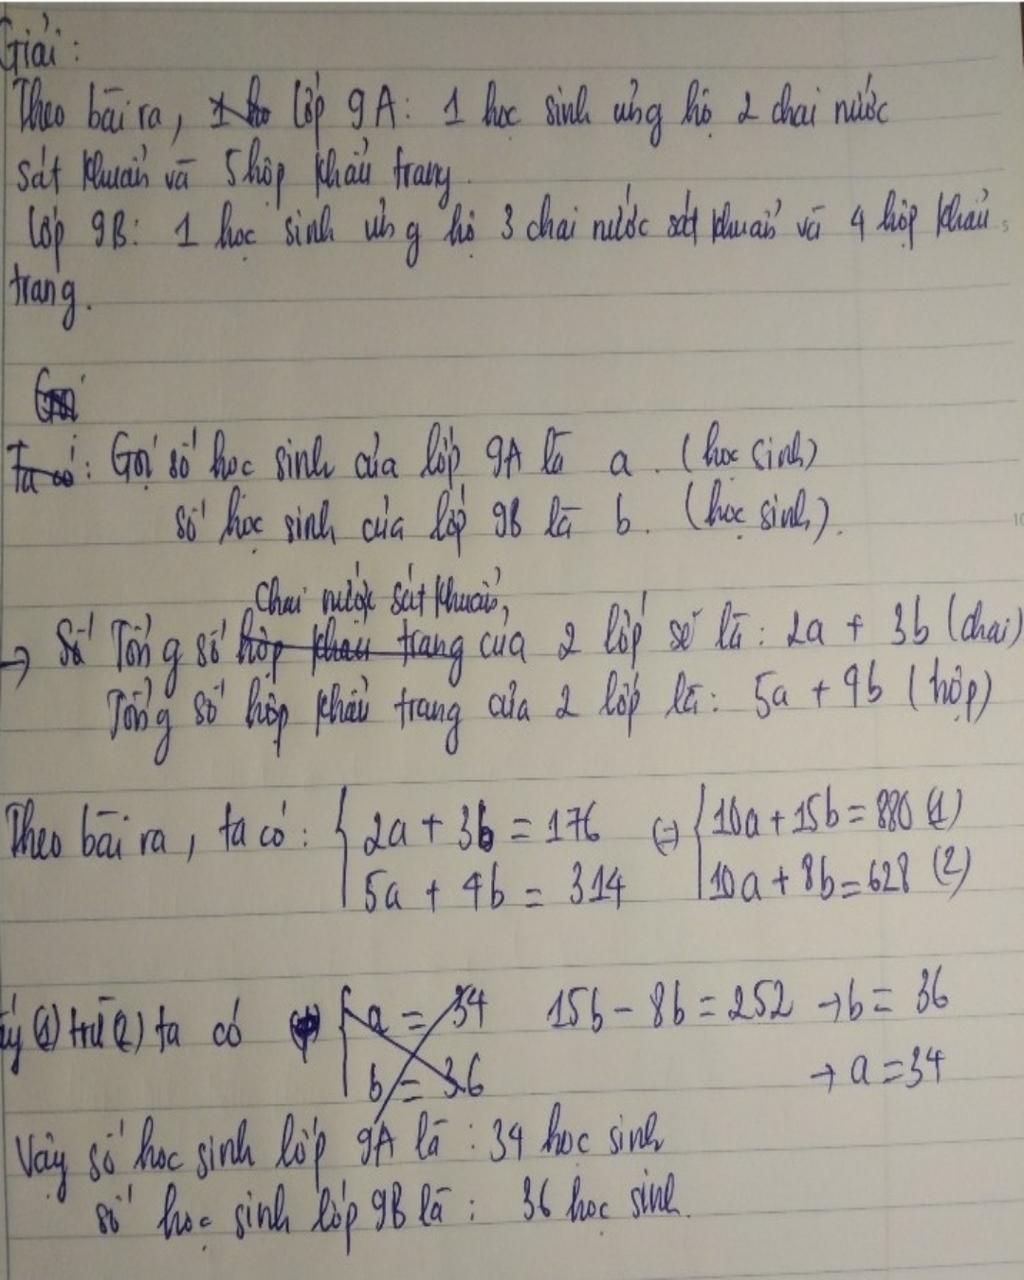 Giải:
Theo bài ra, 1 ho lớp 9A: 1 học sinh ủng hộ 2 chai nước
sát khuẩn và 5 hộp khẩu trang.
lớp 9B: 1 học sinh ủng hộ 3 chai nước sát khuẩn và 4 hộp khẩu
trang.
Gọi
Ta có: Gọi số học sinh của lớp 9A là a. (học sinh)
số học sinh của lớp 9B là b. (học sinh).
chai nước sát khuẩn,
→ Số Tổng số hộp khẩu trang của 2 lớp sẽ là: 2a + 3b (chai)
Tổng số hộp khẩu trang của 2 lớp là: 5a + 4b (hộp)
Theo bài ra, ta có: { 2a + 3b = 176 (=) { 10a + 15b = 880 (1)
5a + 4b = 314 10a + 8b = 628 (2)
lấy (1) trừ (2) ta có { a = 34 15b - 8b = 252 → b = 36
b = 36 → a = 34
Vậy số học sinh lớp 9A là: 34 học sinh
số học sinh lớp 9B là: 36 học sinh.